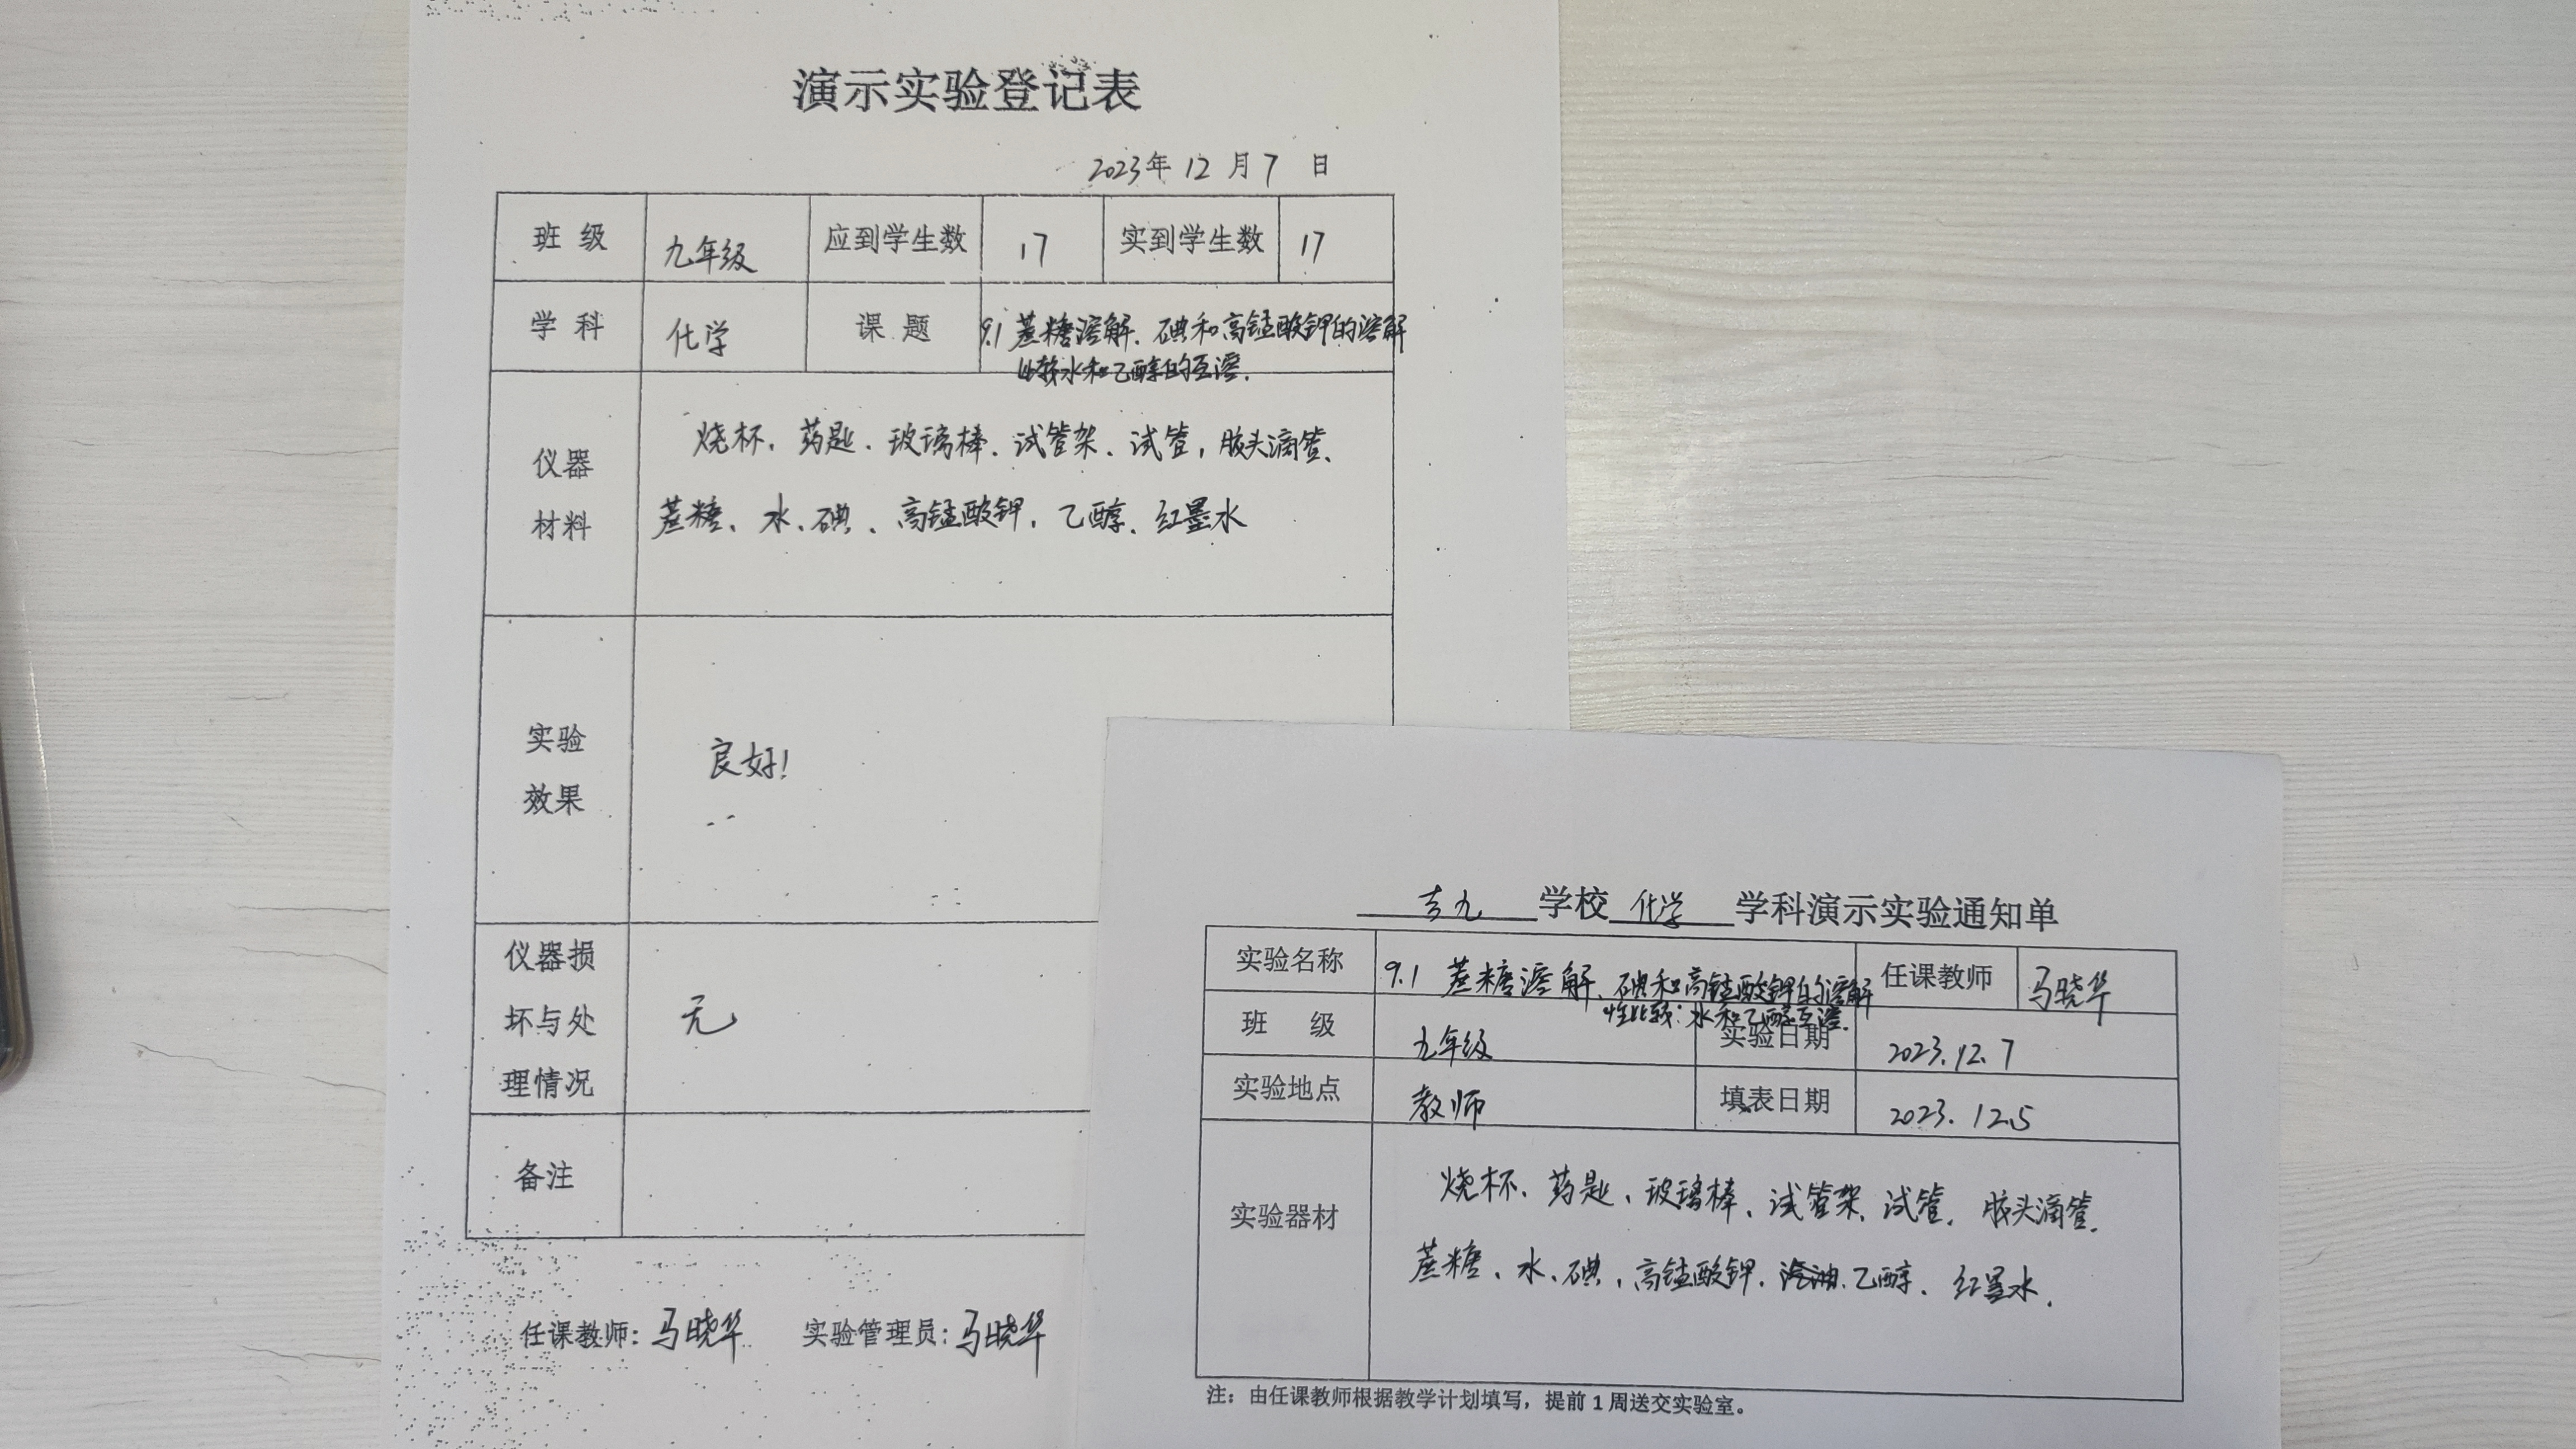 演示实验登记表
2023年 12 月 7 日
班 级 九年级 应到学生数 17 实到学生数 17
学 科 化学 课 题 9.1 蔗糖溶解、碘和高锰酸钾的溶解
比较水和乙醇的互溶.
仪器
材料
烧杯、药匙、玻璃棒、试管架、试管,胶头滴管、
蔗糖、水、碘、高锰酸钾、乙醇、红墨水
实验
效果
良好!
仪器损
坏与处
理情况
无
备注
任课教师:马晓华 实验管理员:马晓华
吉九 学校 化学 学科演示实验通知单
实验名称 9.1 蔗糖溶解、碘和高锰酸钾的溶解 任课教师 马晓华
性比较:水和乙醇互溶.
班 级 九年级 实验日期 2023.12.7
实验地点 教师 填表日期 2023.12.5
实验器材
烧杯、药匙、玻璃棒、试管架、试管、胶头滴管、
蔗糖、水、碘、高锰酸钾、汽油、乙醇、红墨水.
注:由任课教师根据教学计划填写,提前1周送交实验室。